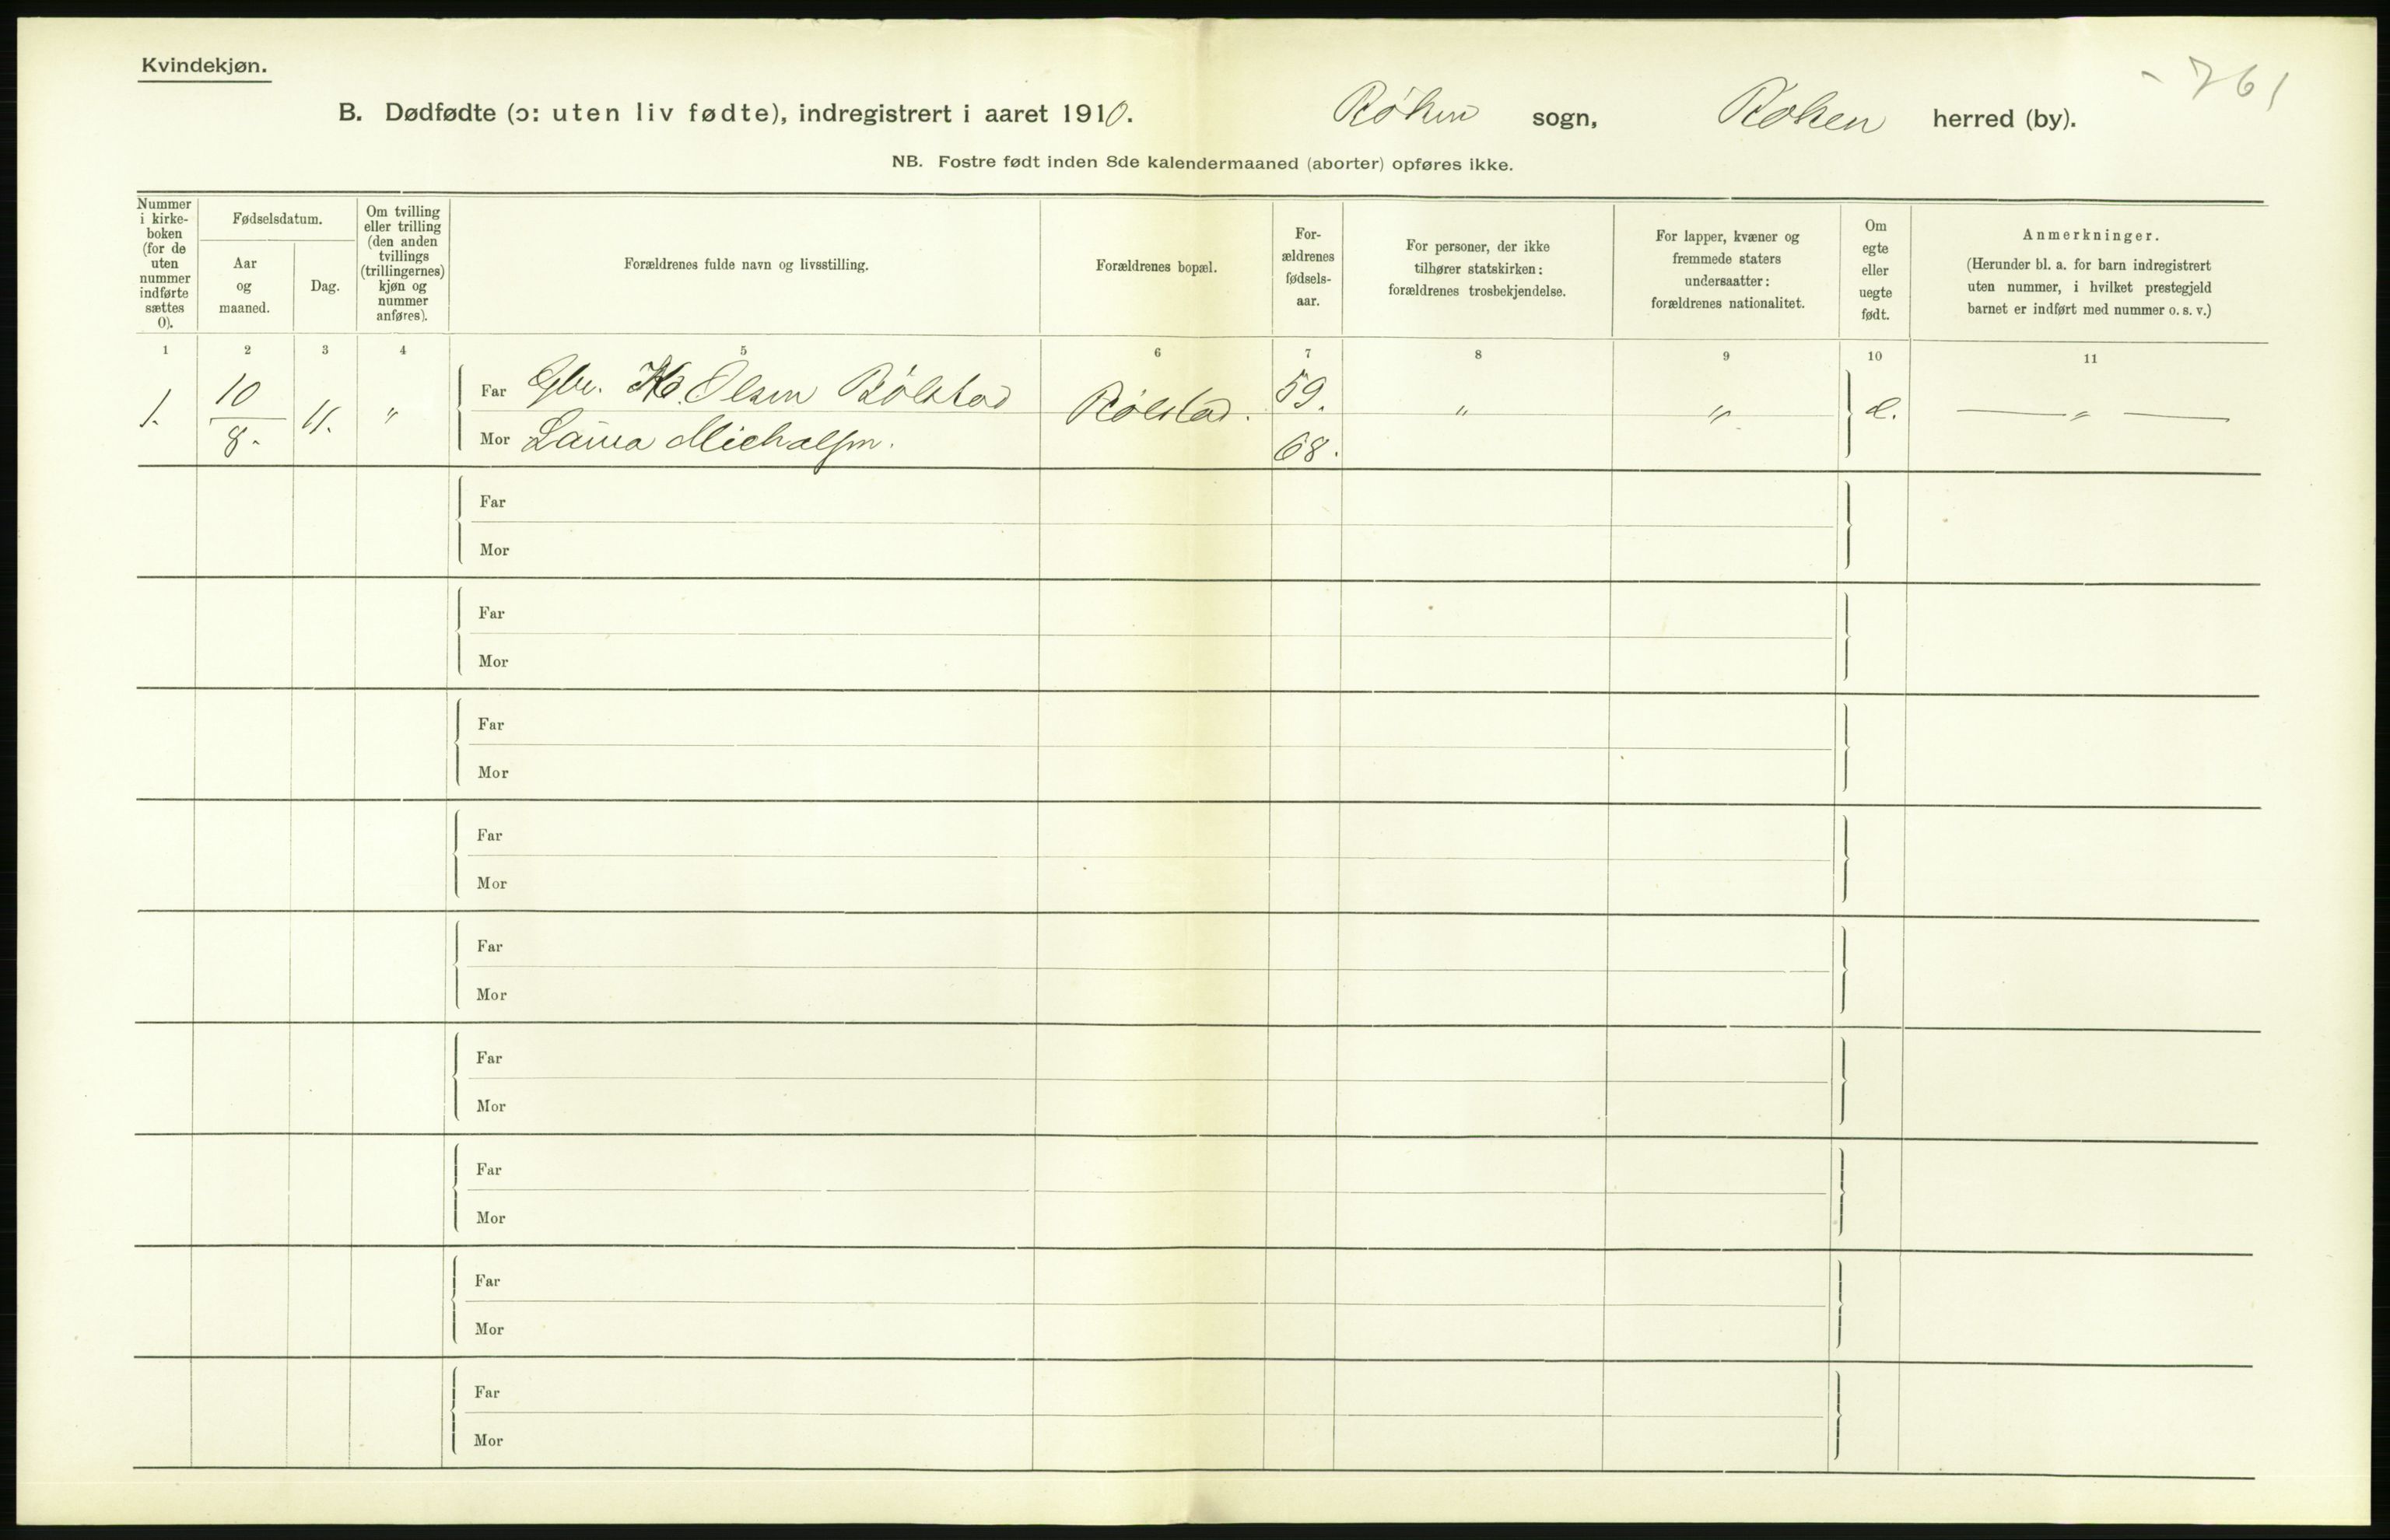 Kvindekjøn.
- 761
B. Dødfødte (ɔ: uten liv fødte), indregistrert i aaret 1910. Røken sogn, Røken herred (by).
NB. Fostre født inden 8de kalendermaaned (aborter) opføres ikke.
Nummer i kirke-boken (for de uten nummer indførte sættes 0).
Fødselsdatum.
Aar og maaned.
Dag.
Om tvilling eller trilling (den anden tvillings (trillingernes) kjøn og nummer anføres).
Forældrenes fulde navn og livsstilling.
Forældrenes bopæl.
For-ældrenes fødsels-aar.
For personer, der ikke tilhører statskirken: forældrenes trosbekjendelse.
For lapper, kvæner og fremmede staters undersaatter: forældrenes nationalitet.
Om egte eller uegte født.
Anmerkninger.
(Herunder bl. a. for barn indregistrert uten nummer, i hvilket prestegjeld barnet er indført med nummer o. s. v.)
1 2 3 4 5 6 7 8 9 10 11
1. 10/8. 11. " Far Gbr. Olsen Bølstad Bølstad. 59. " " e. — " —
Mor Laura Michalsen. 68.
Far
Mor
Far
Mor
Far
Mor
Far
Mor
Far
Mor
Far
Mor
Far
Mor
Far
Mor
Far
Mor